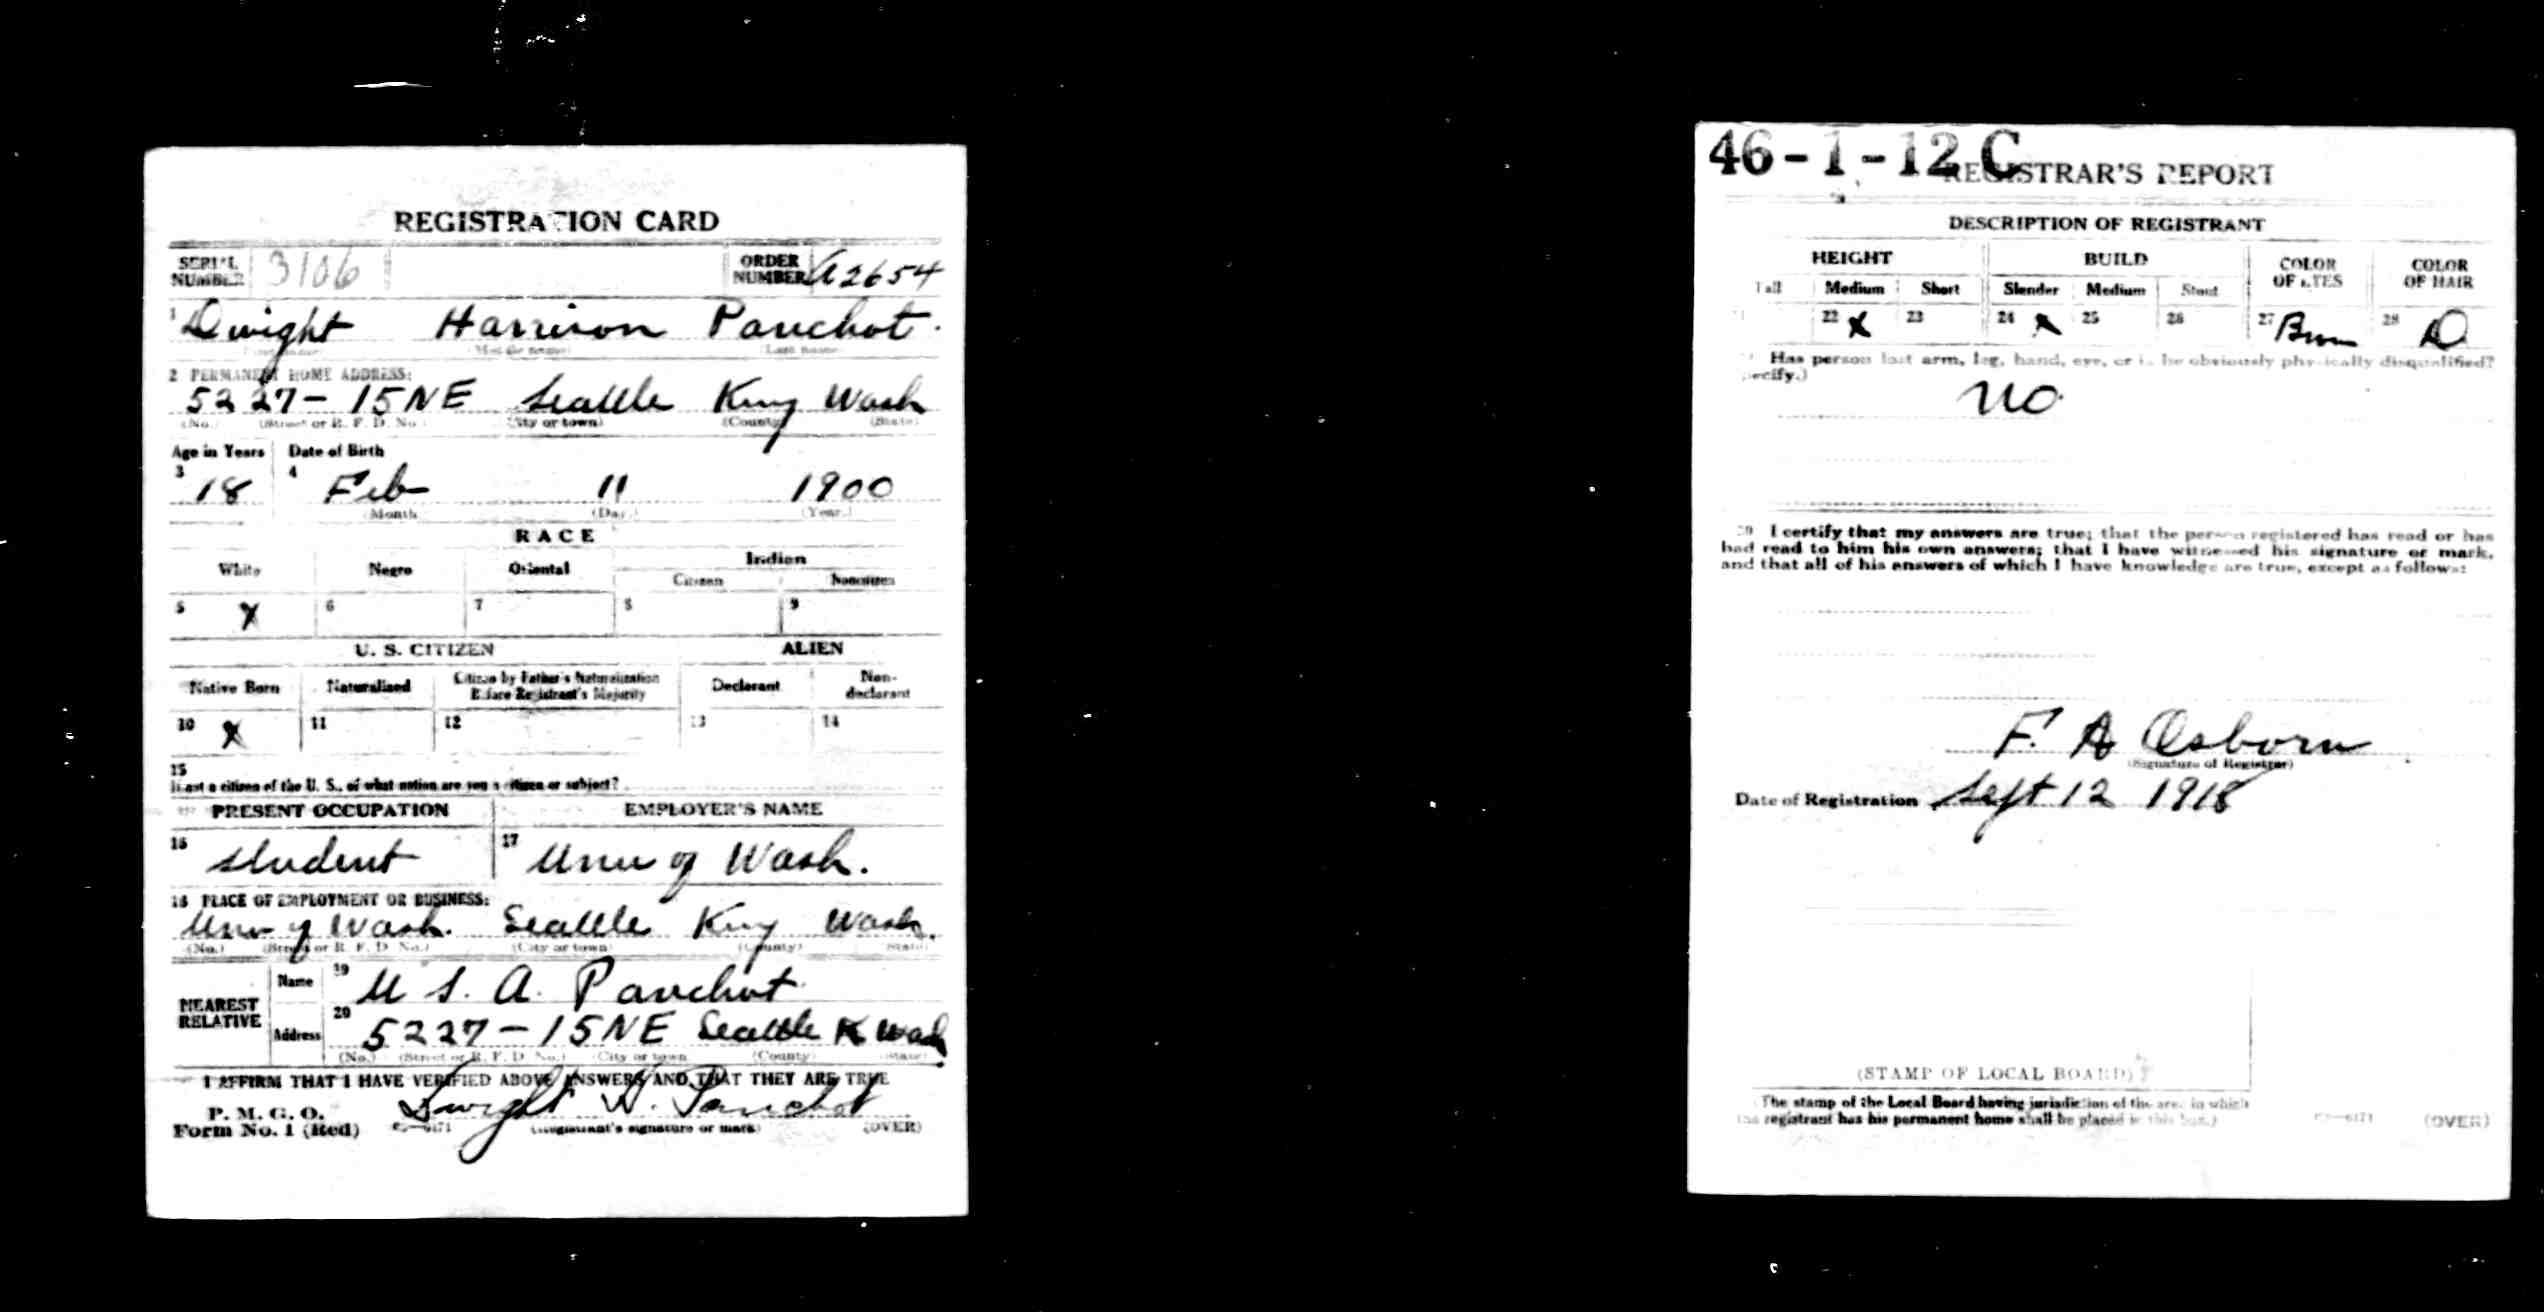 REGISTRATION CARD
SERIAL NUMBER 3106 ORDER NUMBER A2654
1 Dwight Harrison Panchot.
(Middle name) (Last name)
2 PERMANENT HOME ADDRESS:
5227 - 15 NE Seattle King Wash
(No.) (Street or R. F. D. No.) (City or town) (County) (State)
Age in Years Date of Birth
3 18 4 Feb 11 1900
(Month) (Day.) (Year.)
RACE
White Negro Oriental Indian
Citizen Noncitizen
5 X 6 7 8 9
U. S. CITIZEN ALIEN
Native Born Naturalized Citizen by Father's Naturalization Before Registrant's Majority Declarant Non-declarant
10 X 11 12 13 14
15
If not a citizen of the U. S., of what nation are you a citizen or subject?
PRESENT OCCUPATION EMPLOYER'S NAME
16 student 17 Univ of Wash.
18 PLACE OF EMPLOYMENT OR BUSINESS:
Univ of Wash. Seattle King Wash.
(No.) (Street or R. F. D. No.) (City or town) (County) (State)
NEAREST RELATIVE
Name 19 U S. A. Panchot
Address 20 5227 - 15 NE Seattle K Wash
(No.) (Street or R. F. D. No.) (City or town) (County) (State)
I AFFIRM THAT I HAVE VERIFIED ABOVE ANSWERS AND THAT THEY ARE TRUE
P. M. G. O.
Form No. 1 (Red) Dwight H. Panchot
(Registrant's signature or mark) (OVER)
46-1-12 C
REGISTRAR'S REPORT
DESCRIPTION OF REGISTRANT
HEIGHT BUILD COLOR OF EYES COLOR OF HAIR
Tall Medium Short Slender Medium Stout
22 X 23 24 X 25 26 27 Brown 28 D
Has person lost arm, leg, hand, eye, or is he obviously physically disqualified?
(Specify.) No
I certify that my answers are true; that the person registered has read or has
had read to him his own answers; that I have witnessed his signature or mark,
and that all of his answers of which I have knowledge are true, except as follows:
F. A Osborn
(Signature of Registrar)
Date of Registration Sept 12 1918
(STAMP OF LOCAL BOARD)
(The stamp of the Local Board having jurisdiction of the area in which
the registrant has his permanent home shall be placed in this box.)
(OVER)